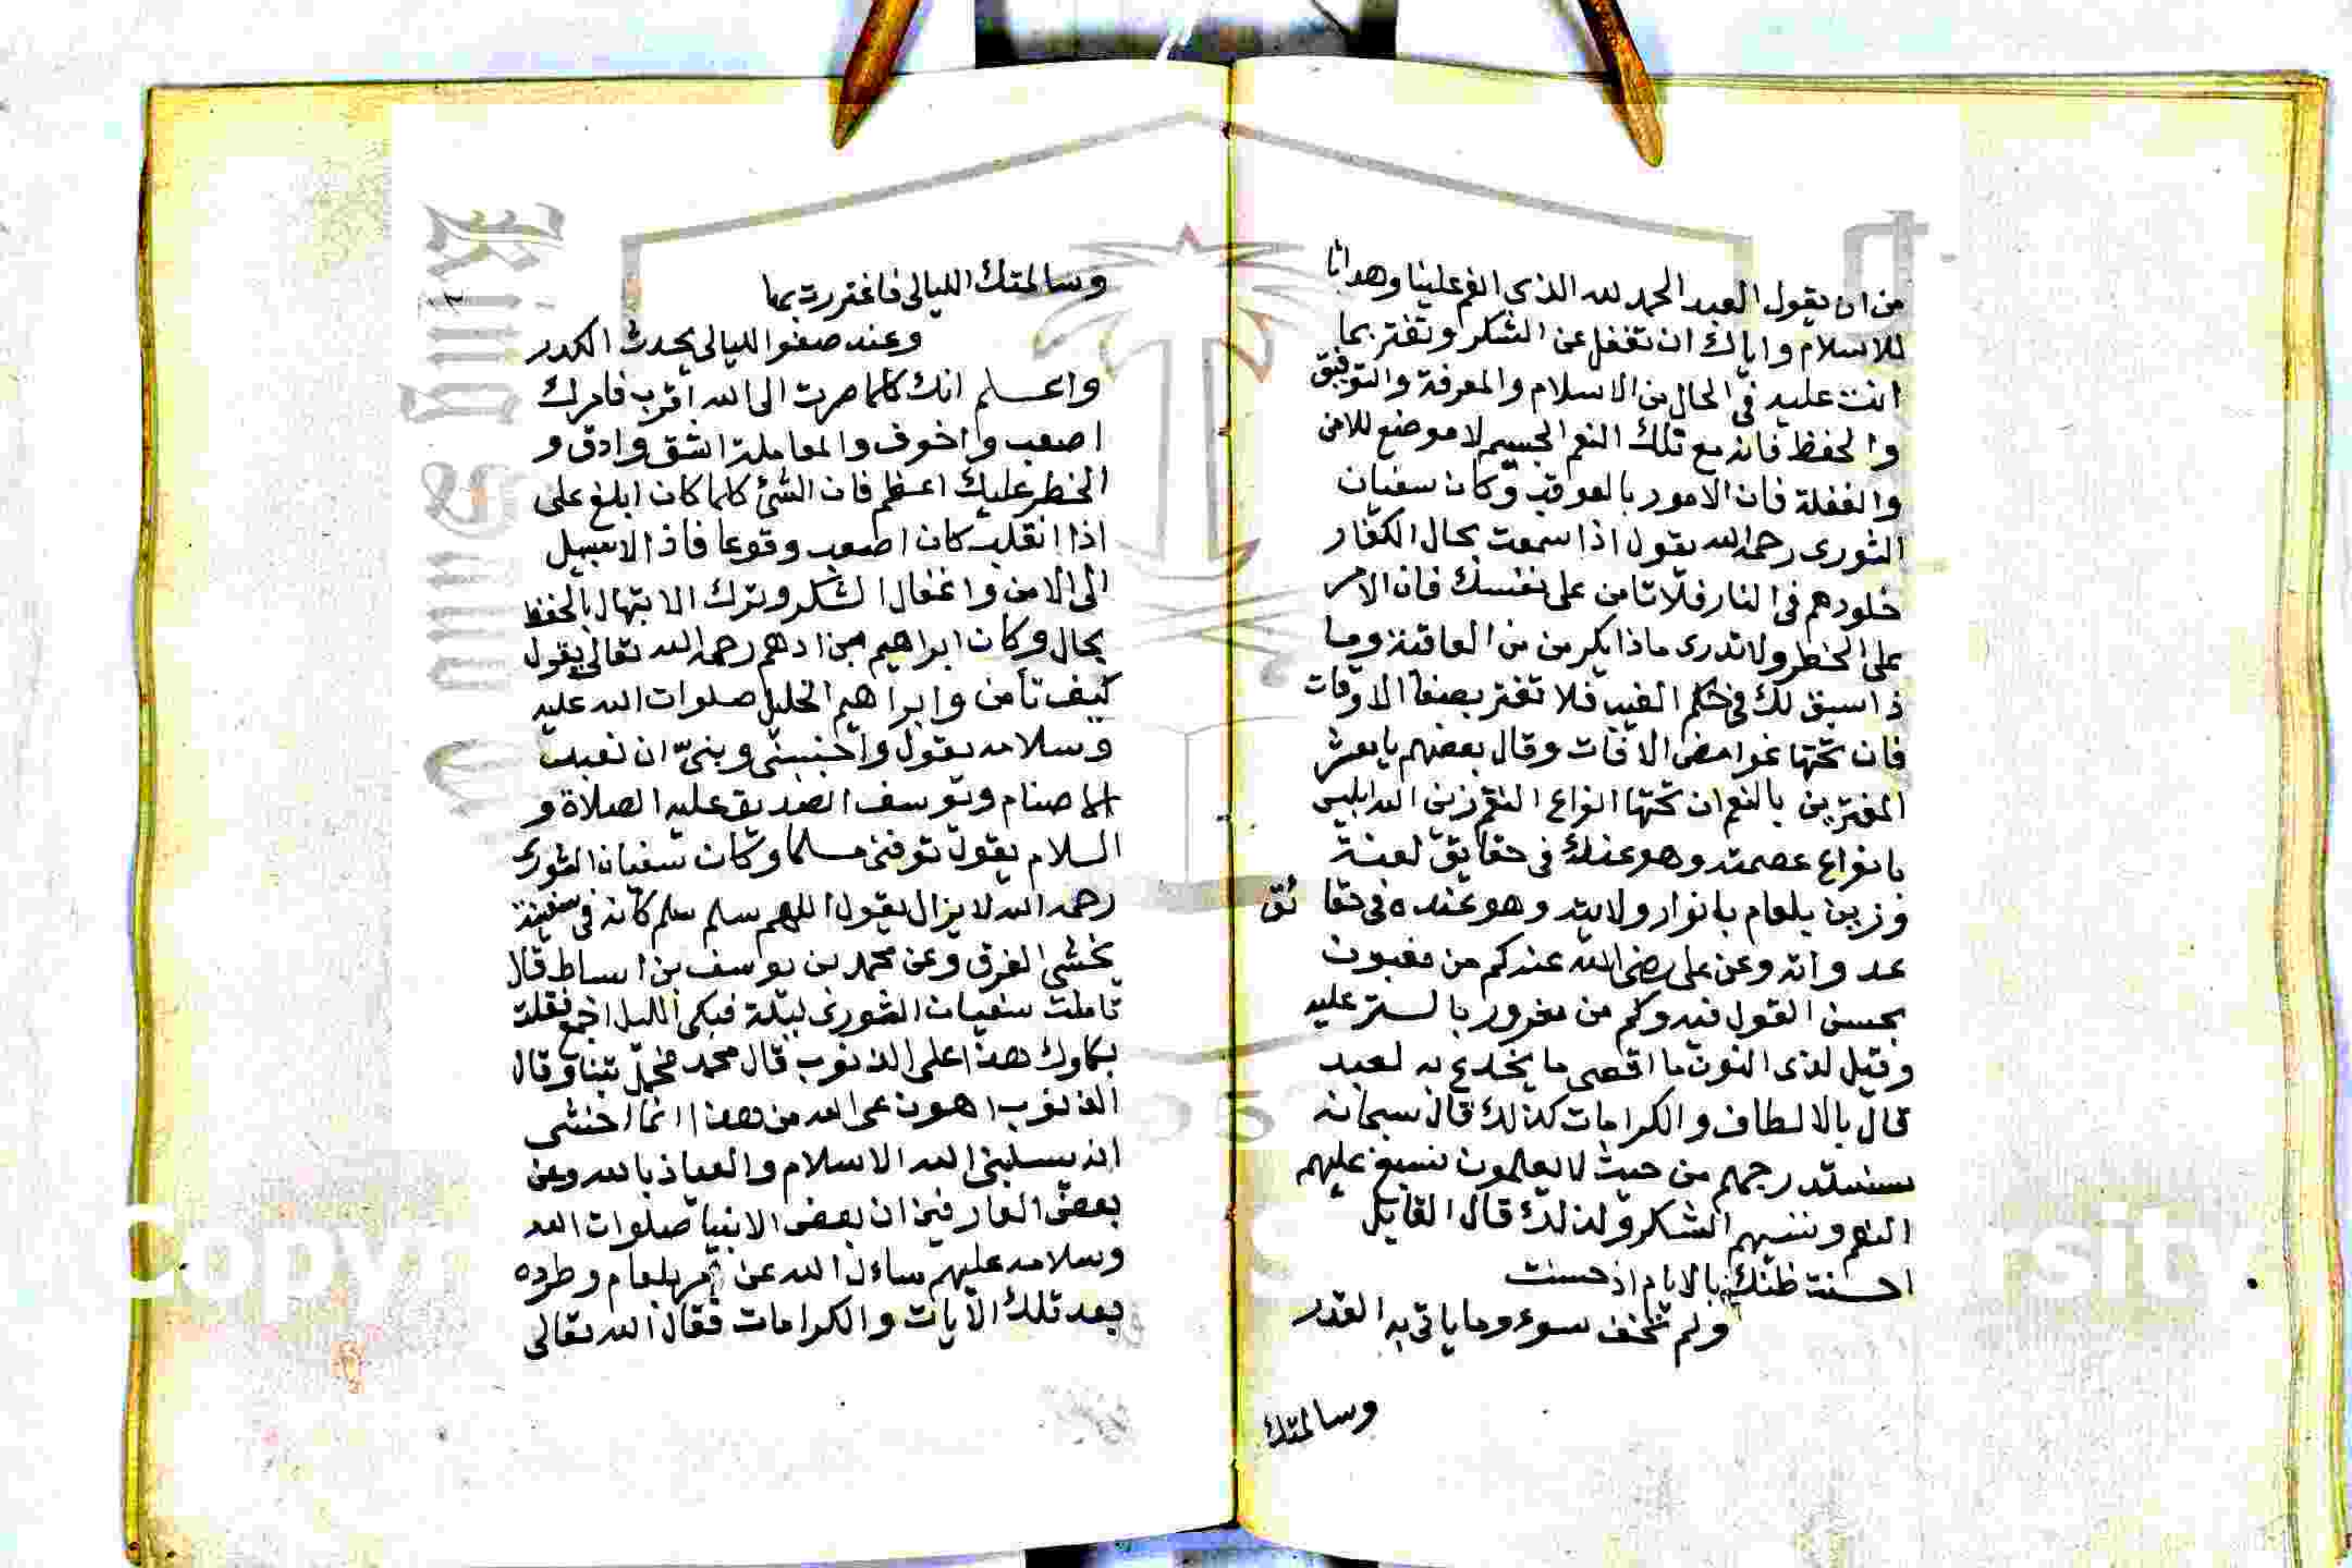 من ان يقول العبد الحمد لله الذي انعم علينا وهدانا
للاسلام واياك ان تغفل عن الشكر وتغتر بما
انت عليه في الحال من الاسلام والمعرفة والتوفيق
والحفظ فانه مع تلك النعم الجسيم لا موضع للامن
والغفلة فان الامور بالعواقب وكان سفيان
الثورى رحمه الله يقول اذا سمعت بحال الكفار
خلودهم في النار فلا تامن على نفسك فان الامر
على الخطر ولا تدرى ماذا يكن من من العاقبة وما
ذا سبق لك في حكم الغيب فلا تغتر بصفا الاوقات
فان تحتها غوامض الافات وقال بعضهم يا معشر
المغترين بالنعم ان تحتها انواع النقم زين الله ابليس
بانواع عصمته وهو عنده في حقايق لعنته
وزين بلعام بانوار ولايته وهو عنده في حقا ئق
عداوته وعن على رضي الله عنه كم من مغبون
بحسن القول فيه وكم من مغرور بالستر عليه
وقيل لذى النون ما اقصى ما يخدع به لعبد
قال بالالطاف والكرامات كذلك قال سبحانه
سنستدرجهم من حيث لا يعلمون نسبغ عليهم
النعم وننسيهم الشكر ولذلك قال القايل
احسنت ظنك بالايام اذ حسنت
ولم تخف سوء وما ياتى به القدر
وسالمتك
وسالمتك الليالي فاغتررت بها
وعند صفو الليالي يحدث الكدر
واعلم انك كلما صرت الى الله اقرب فامرك
اصعب واخوف والمعاملة اشق وادق و
الخطر عليك اعظم فان الشئ كلما كان ابلغ على
اذا انقلب كان اصعب وقوعا فاذا لا سبيل
الى الامن واغفال الشكر وترك الابتهال بالحفظ
بحال وكان ابراهيم بن ادهم رحمه الله تعالى يقول
كيف تامن وابراهيم الخليل صلوات الله عليه
وسلامه يقول واجنبنى وبنىّ ان نعبد
الاصنام ويوسف الصديق عليه الصلاة و
السلام يقول توفنى مسلما وكان سفيان الثورى
رحمه الله لا يزال يقول اللهم سلم سلم كانه في سفينة
يخشى الغرق وعن محمد بن يوسف بن اسباط قال
تاملت سفيان الثورى ليلة فبكى الليل اجمع فقلت
بكاوك هذا على الذنوب قال محمد فحمل تبنا وقال
الذنوب اهون على الله من هذا انما اخشى
ان يسلبنى الله الاسلام والعياذ بالله وعن
بعض العارفين ان بعض الانبيا صلوات الله
وسلامه عليهم سال الله عن امر بلعام وطرده
بعد تلك الايات والكرامات فقال الله تعالى